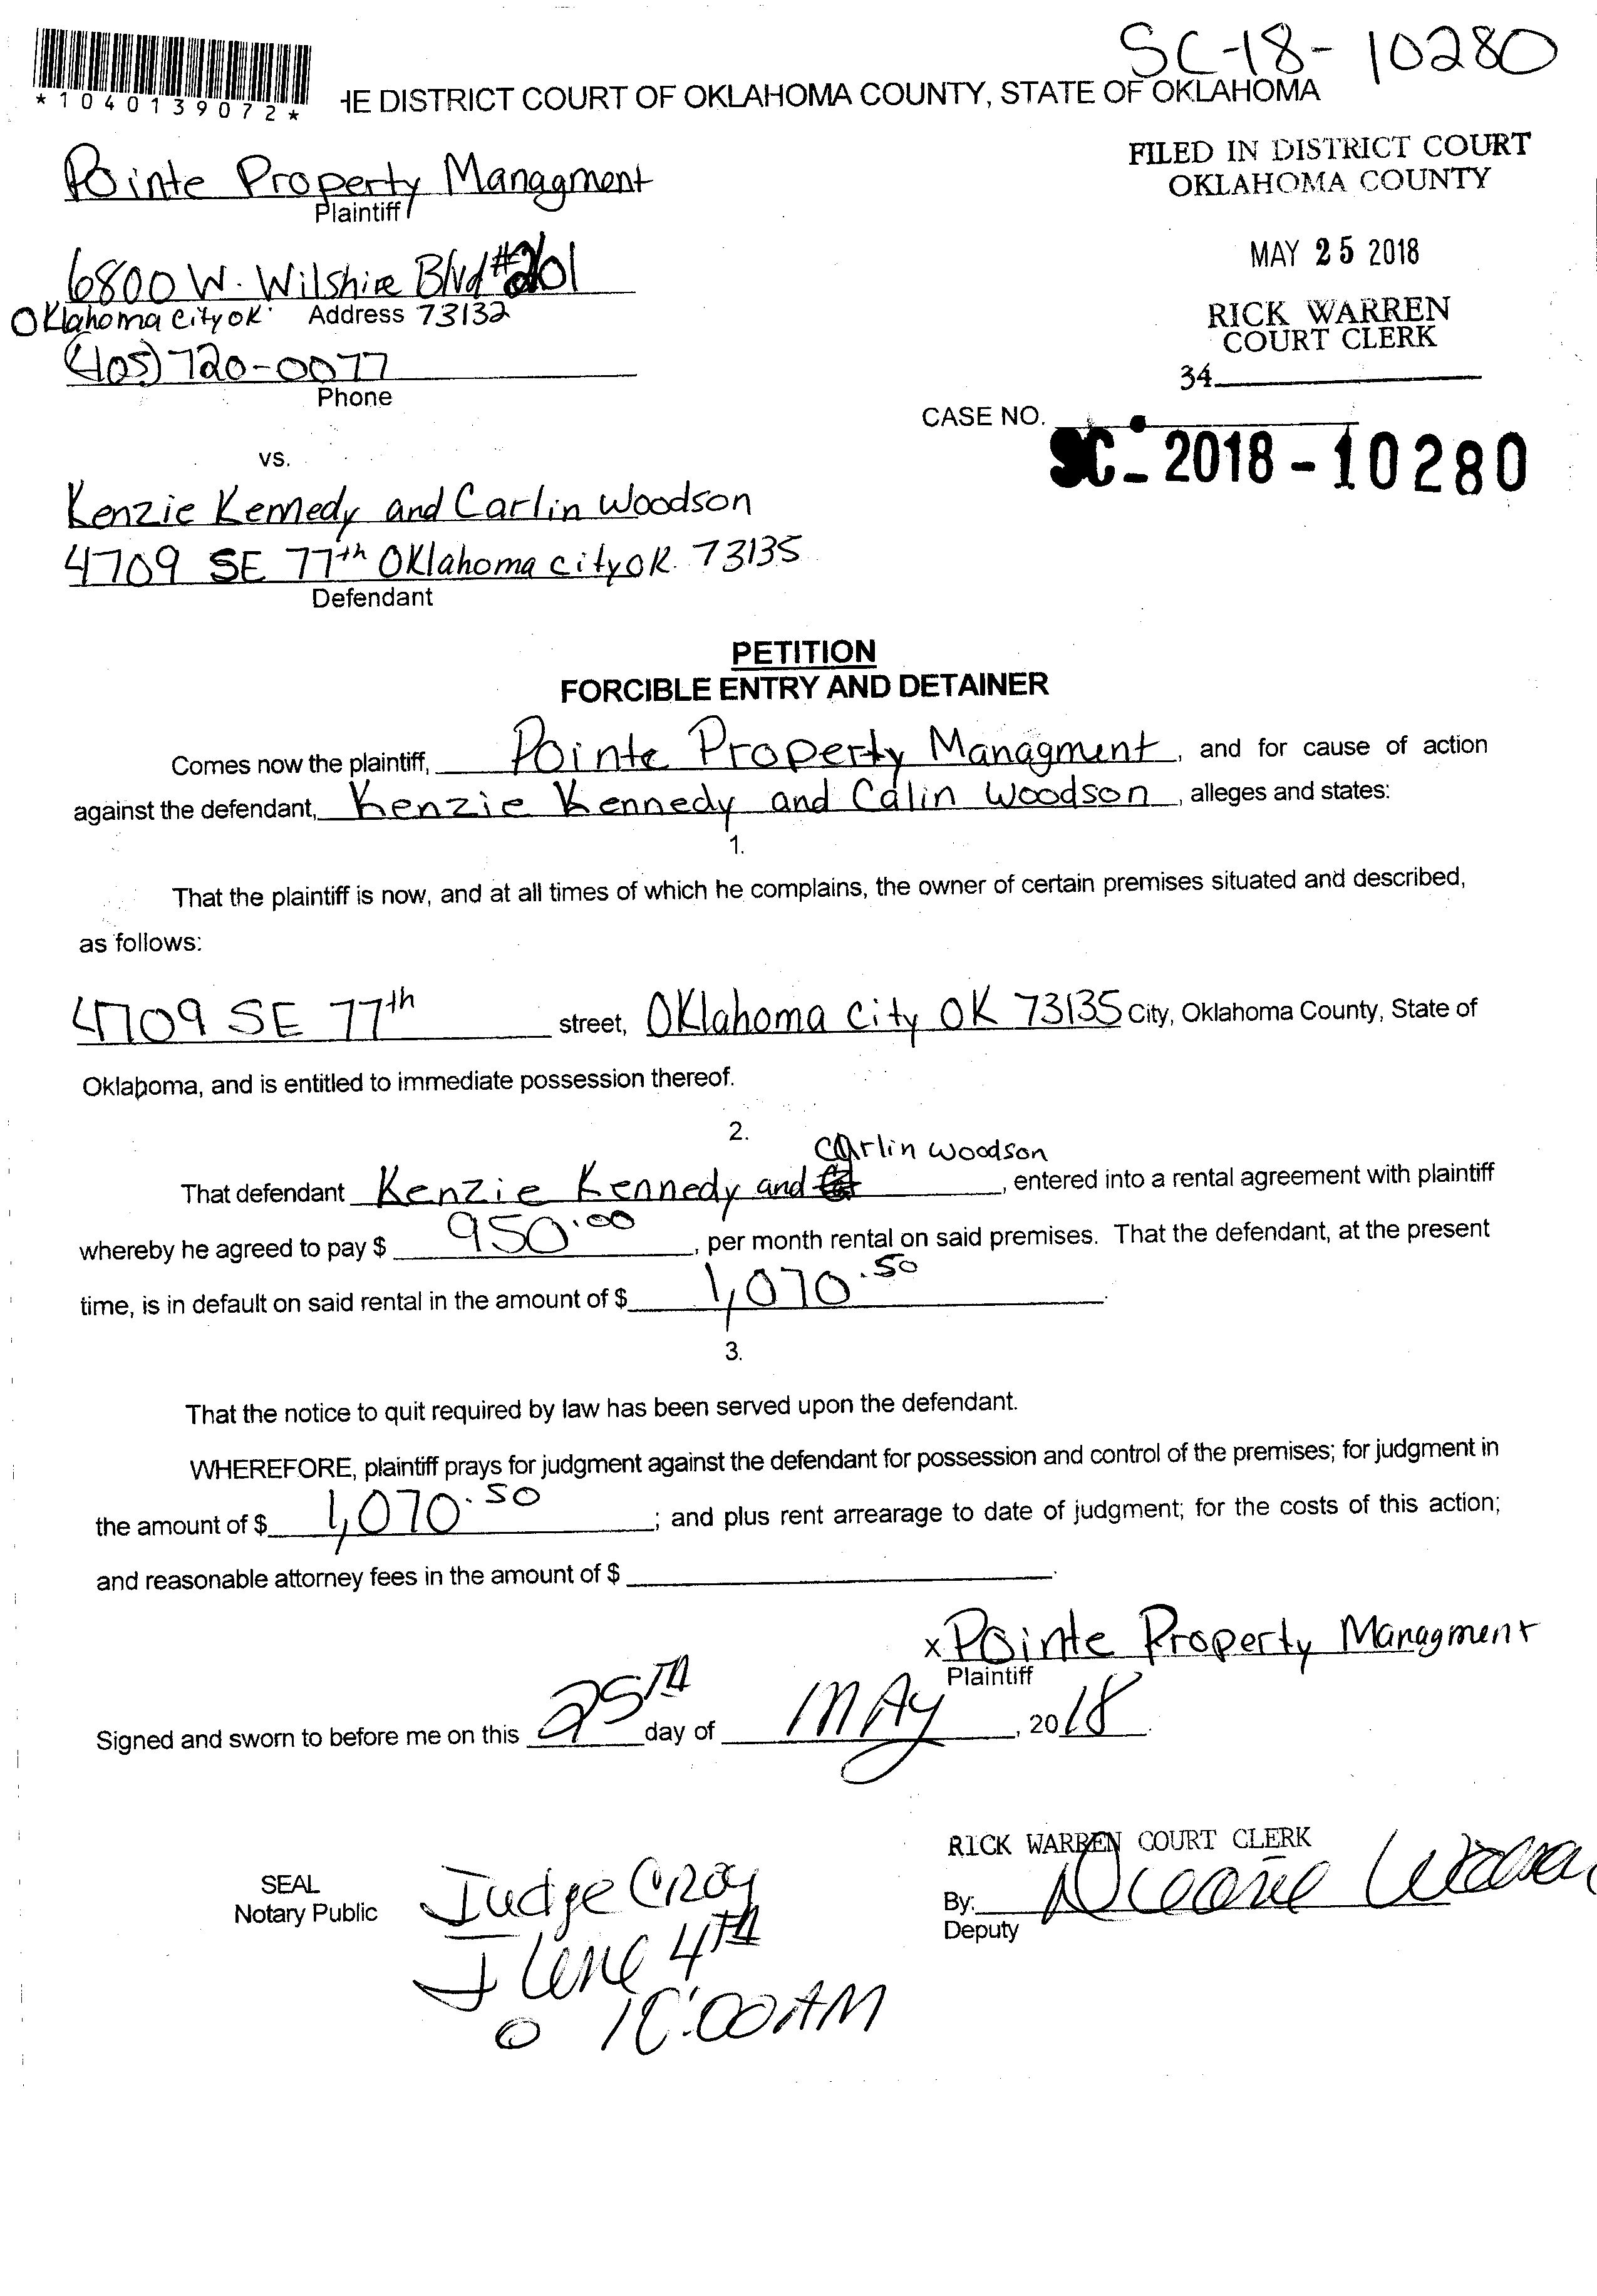 SC-18-10280
*1040139072*
HE DISTRICT COURT OF OKLAHOMA COUNTY, STATE OF OKLAHOMA
FILED IN DISTRICT COURT
OKLAHOMA COUNTY
Pointe Property Managment
Plaintiff
MAY 25 2018
6800 W. Wilshire Blvd #201
Oklahoma City OK. Address 73132
RICK WARREN
COURT CLERK
(405) 720-0077
Phone
34
CASE NO.
SC-2018-10280
vs.
Kenzie Kennedy and Carlin Woodson
4709 SE 77th Oklahoma City OK. 73135
Defendant
PETITION
FORCIBLE ENTRY AND DETAINER
Comes now the plaintiff, Pointe Property Managment, and for cause of action
against the defendant, Kenzie Kennedy and Calin Woodson, alleges and states:
1.
That the plaintiff is now, and at all times of which he complains, the owner of certain premises situated and described,
as follows:
4709 SE 77th street, Oklahoma City OK 73135 City, Oklahoma County, State of
Oklahoma, and is entitled to immediate possession thereof.
2.
Carlin Woodson
That defendant Kenzie Kennedy and , entered into a rental agreement with plaintiff
whereby he agreed to pay $ 950.00, per month rental on said premises. That the defendant, at the present
time, is in default on said rental in the amount of $ 1,070.50.
3.
That the notice to quit required by law has been served upon the defendant.
WHEREFORE, plaintiff prays for judgment against the defendant for possession and control of the premises; for judgment in
the amount of $ 1,070.50; and plus rent arrearage to date of judgment; for the costs of this action;
and reasonable attorney fees in the amount of $ .
x Pointe Property Managment
Plaintiff
Signed and sworn to before me on this 25TH day of MAY, 2018.
RICK WARREN COURT CLERK
SEAL
Notary Public
Judge Croy
By:
Deputy
June 4TH
@ 10:00 AM